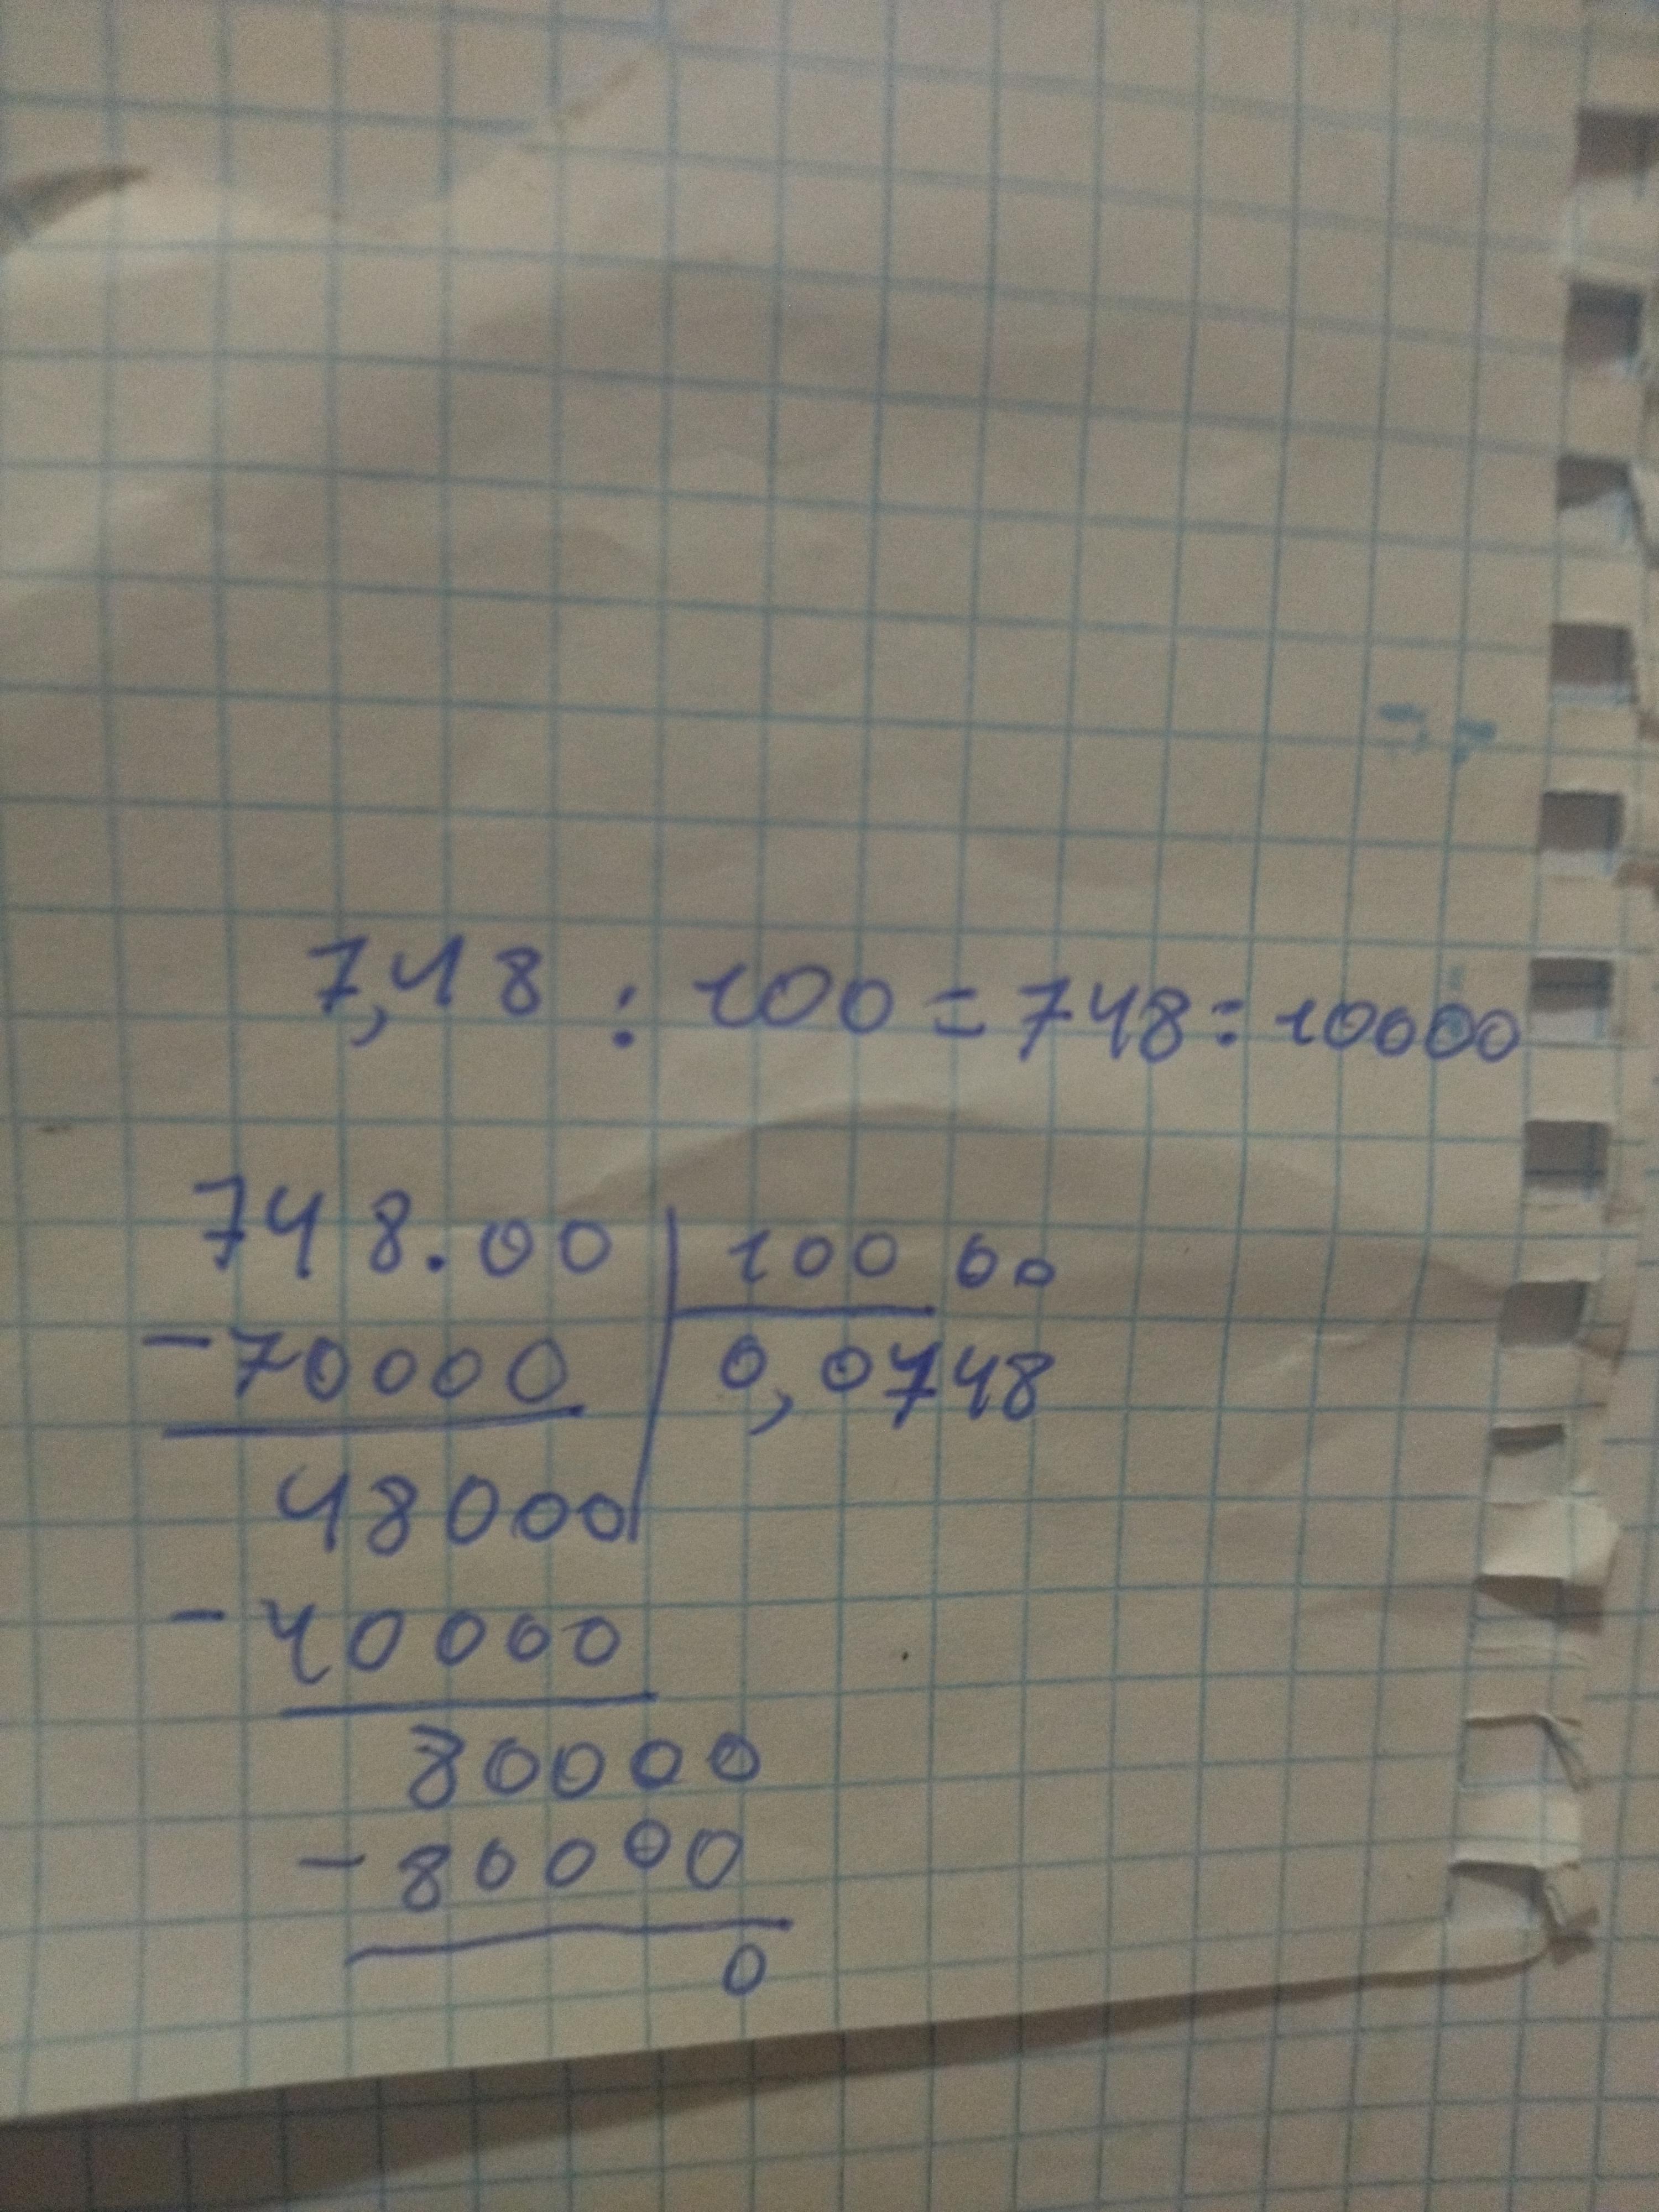 7,48 : 100 = 748 : 10000
748.00 | 100 00
- 70000 | 0,0748
48000
- 40000
80000
- 80000
0